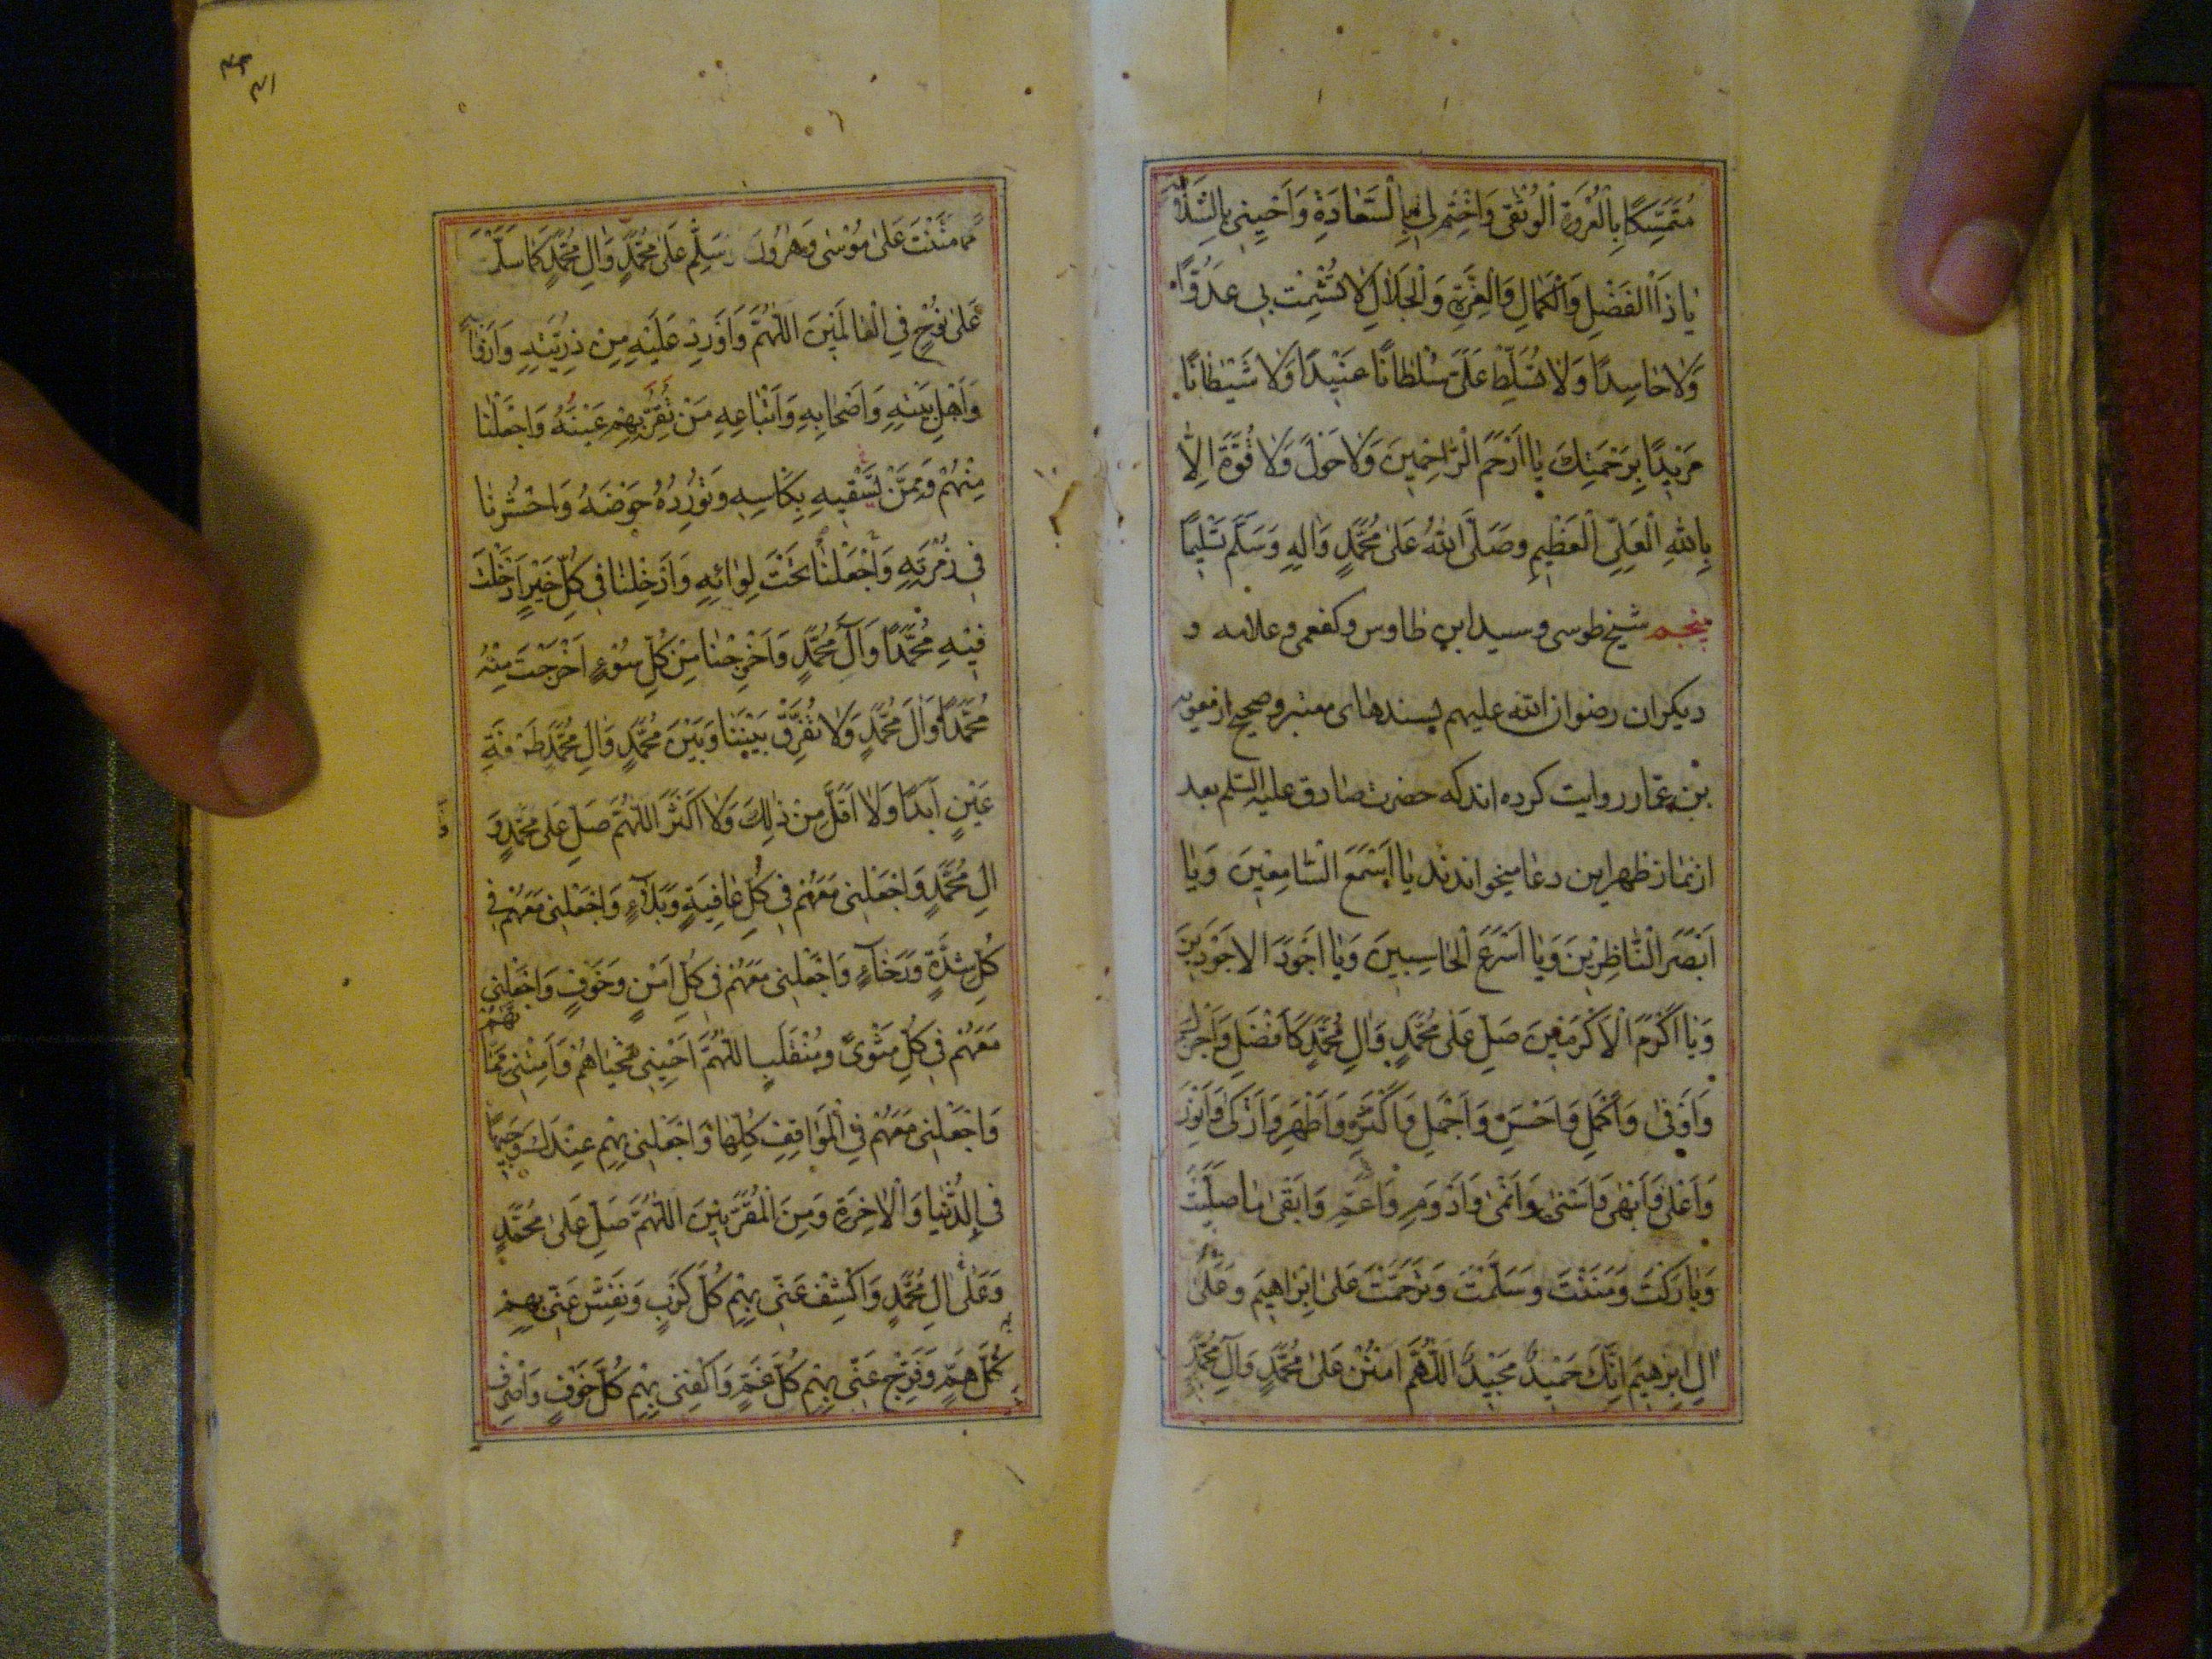 مُتَمَسِّكًا بِالْعُرْوَةِ الْوُثْقٰى وَاخْتِمْ لِي بِالسَّعَادَةِ وَاَحْيِنِي بِالسِّتْرِ
يَا ذَا الْفَضْلِ وَالْكَمَالِ وَالْعِزَّةِ وَالْجَلَالِ لَا تُشْمِتْ بِي عَدُوًّا
وَلَا حَاسِدًا وَلَا تُسَلِّطْ عَلَيَّ سُلْطَانًا عَنِيدًا وَلَا شَيْطَانًا
مَرِيدًا بِرَحْمَتِكَ يَا اَرْحَمَ الرَّاحِمِينَ وَلَا حَوْلَ وَلَا قُوَّةَ اِلَّا
بِاللهِ الْعَلِيِّ الْعَظِيمِ وَصَلَّى اللهُ عَلٰى مُحَمَّدٍ وَاٰلِهِ وَسَلَّمَ تَسْلِيمًا
پنجم شیخ طوسی و سید ابن طاوس و کفعمی و علامه و
دیکران رضوان الله علیهم بسندهای معتبر و صحیح از معویه
بن عمار روایت کرده اند که حضرت صادق علیه السلم بعد
از نماز ظهر این دعا میخواندند يَا اَسْمَعَ السَّامِعِينَ وَيَا
اَبْصَرَ النَّاظِرِينَ وَيَا اَسْرَعَ الْحَاسِبِينَ وَيَا اَجْوَدَ الْاَجْوَدِينَ
وَيَا اَكْرَمَ الْاَكْرَمِينَ صَلِّ عَلٰى مُحَمَّدٍ وَاٰلِ مُحَمَّدٍ كَاَفْضَلِ وَاَجْزَلِ
وَاَوْفٰى وَاَكْمَلِ وَاَحْسَنِ وَاَجْمَلِ وَاَكْثَرِ وَاَطْهَرِ وَاَزْكٰى وَاَنْوَرِ
وَاَعْلٰى وَاَبْهٰى وَاَسْنٰى وَاَنْمٰى وَاَدْوَمِ وَاَعَمِّ وَاَبْقٰى مَا صَلَّيْتَ
وَبَارَكْتَ وَمَنَنْتَ وَسَلَّمْتَ وَتَرَحَّمْتَ عَلٰى اِبْرَاهِيمَ وَعَلٰى
اٰلِ اِبْرٰهِيمَ اِنَّكَ حَمِيدٌ مَجِيدٌ اَللّٰهُمَّ امْنُنْ عَلٰى مُحَمَّدٍ وَاٰلِ مُحَمَّدٍ
كَمَا مَنَنْتَ عَلٰى مُوسٰى وَهٰرُونَ وَسَلِّمْ عَلٰى مُحَمَّدٍ وَاٰلِ مُحَمَّدٍ كَمَا سَلَّمْتَ
عَلٰى نُوحٍ فِي الْعَالَمِينَ اَللّٰهُمَّ وَاَوْرِدْ عَلَيْهِ مِنْ ذُرِّيَّتِهِ وَاَزْوَاجِهِ
وَاَهْلِ بَيْتِهِ وَاَصْحَابِهِ وَاَتْبَاعِهِ مَنْ تَقَرُّ بِهِمْ عَيْنُهُ وَاجْعَلْنَا
مِنْهُمْ وَمِمَّنْ تَسْقِيهِ بِكَاْسِهِ وَتُورِدُهُ حَوْضَهُ وَاحْشُرْنَا
فِي زُمْرَتِهِ وَاجْعَلْنَا تَحْتَ لِوَائِهِ وَاَدْخِلْنَا فِي كُلِّ خَيْرٍ اَدْخَلْتَ
فِيهِ مُحَمَّدًا وَاٰلَ مُحَمَّدٍ وَاَخْرِجْنَا مِنْ كُلِّ سُوءٍ اَخْرَجْتَ مِنْهُ
مُحَمَّدًا وَاٰلَ مُحَمَّدٍ وَلَا تُفَرِّقْ بَيْنَنَا وَبَيْنَ مُحَمَّدٍ وَاٰلِ مُحَمَّدٍ طَرْفَةَ
عَيْنٍ اَبَدًا وَلَا اَقَلَّ مِنْ ذٰلِكَ وَلَا اَكْثَرَ اَللّٰهُمَّ صَلِّ عَلٰى مُحَمَّدٍ وَ
اٰلِ مُحَمَّدٍ وَاجْعَلْنِي مَعَهُمْ فِي كُلِّ عَافِيَةٍ وَبَلَاءٍ وَاجْعَلْنِي مَعَهُمْ فِي
كُلِّ شِدَّةٍ وَرَخَاءٍ وَاجْعَلْنِي مَعَهُمْ فِي كُلِّ اَمْنٍ وَخَوْفٍ وَاجْعَلْنِي
مَعَهُمْ فِي كُلِّ مَثْوًى وَمُنْقَلَبٍ اَللّٰهُمَّ اَحْيِنِي مَحْيَاهُمْ وَاَمِتْنِي مَمَاتَهُمْ
وَاجْعَلْنِي مَعَهُمْ فِي الْمَوَاقِفِ كُلِّهَا وَاجْعَلْنِي بِهِمْ عِنْدَكَ وَجِيهًا
فِي الدُّنْيَا وَالْاٰخِرَةِ وَمِنَ الْمُقَرَّبِينَ اَللّٰهُمَّ صَلِّ عَلٰى مُحَمَّدٍ
وَعَلٰى اٰلِ مُحَمَّدٍ وَاكْشِفْ عَنِّي بِهِمْ كُلَّ كَرْبٍ وَنَفِّسْ عَنِّي بِهِمْ
كُلَّ هَمٍّ وَفَرِّجْ عَنِّي بِهِمْ كُلَّ غَمٍّ وَاكْفِنِي بِهِمْ كُلَّ خَوْفٍ وَاصْرِفْ